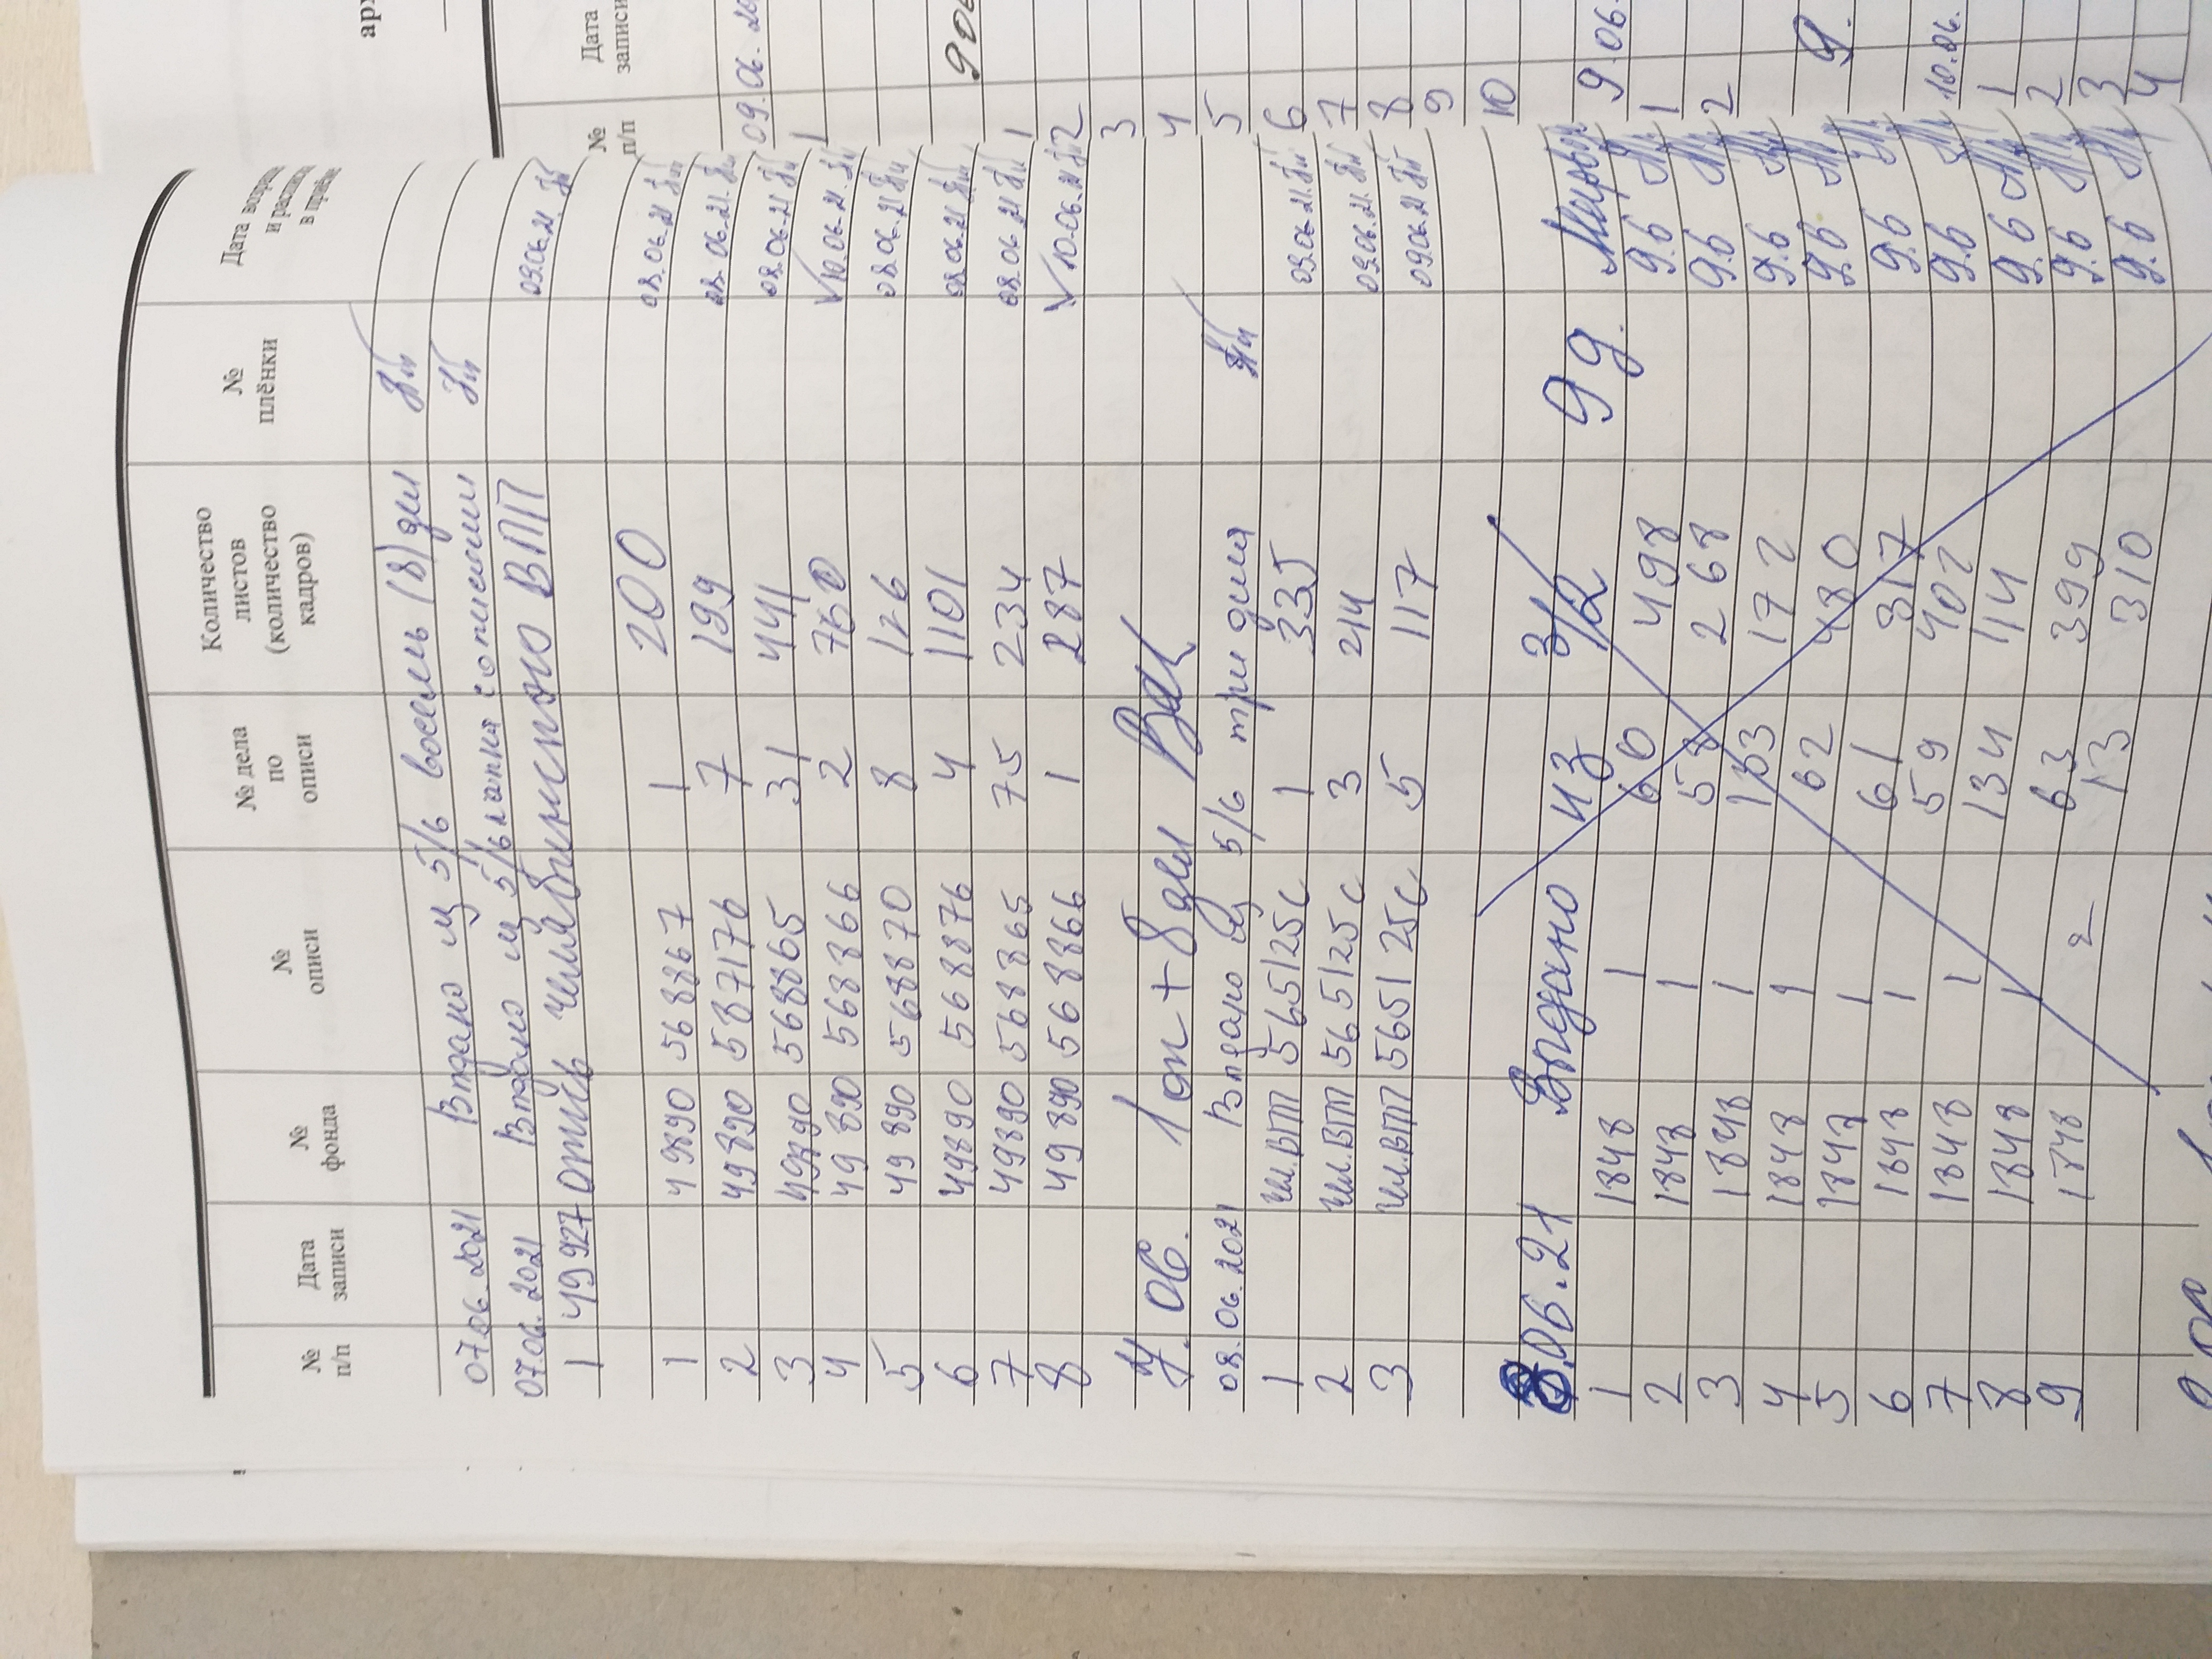 № п/п Дата записи № фонда № описи № дела по описи Количество листов (количество кадров) № плёнки Дата возвра и распис в приём
07.06.2021 Выдано из 5/6 восемь (8) дел
07.06.2021 Выдано из 5/6
1 49927 опись челябинского ВПП 09.06.21.
1 49890 568867 1 200 08.06.21
2 49890 587176 7 199 08.06.21.
3 49890 568865 31 441 08.06.21
4 49890 568866 2 750 V10.06.21.
5 49890 568870 8 126 08.06.21
6 49890 568876 4 1101 08.06.21
7 49890 568865 75 234 08.06.21
8 49890 568866 1 287 V10.06.21
7.06. 1 оп + 8 дел
08.06.2021 Выдано из 5/6 три дела
1 чел.ВПП 565125с 1 335 09.06.21.
2 чел.ВПП 565125с 3 214 09.06.21.
3 чел.ВПП 565125с 5 117 09.06.21
8.06.21 Выдано из 3/2 9 д.
1 1848 1 60 498 9.6
2 1848 1 58 268 9.6
3 1848 1 133 172 9.6
4 1848 1 62 480 9.6
5 1848 1 61 317 9.6
6 1848 1 59 402 9.6
7 1848 1 134 114 9.6
8 1848 1 63 399 9.6
9 1848 2 13 310 9.6
№ п/п Дата записи
09.06.20
1
1
2
3
4
5
6
7
8
9
10
9.06.
1
2
9.
10.06.
1
2
3
4